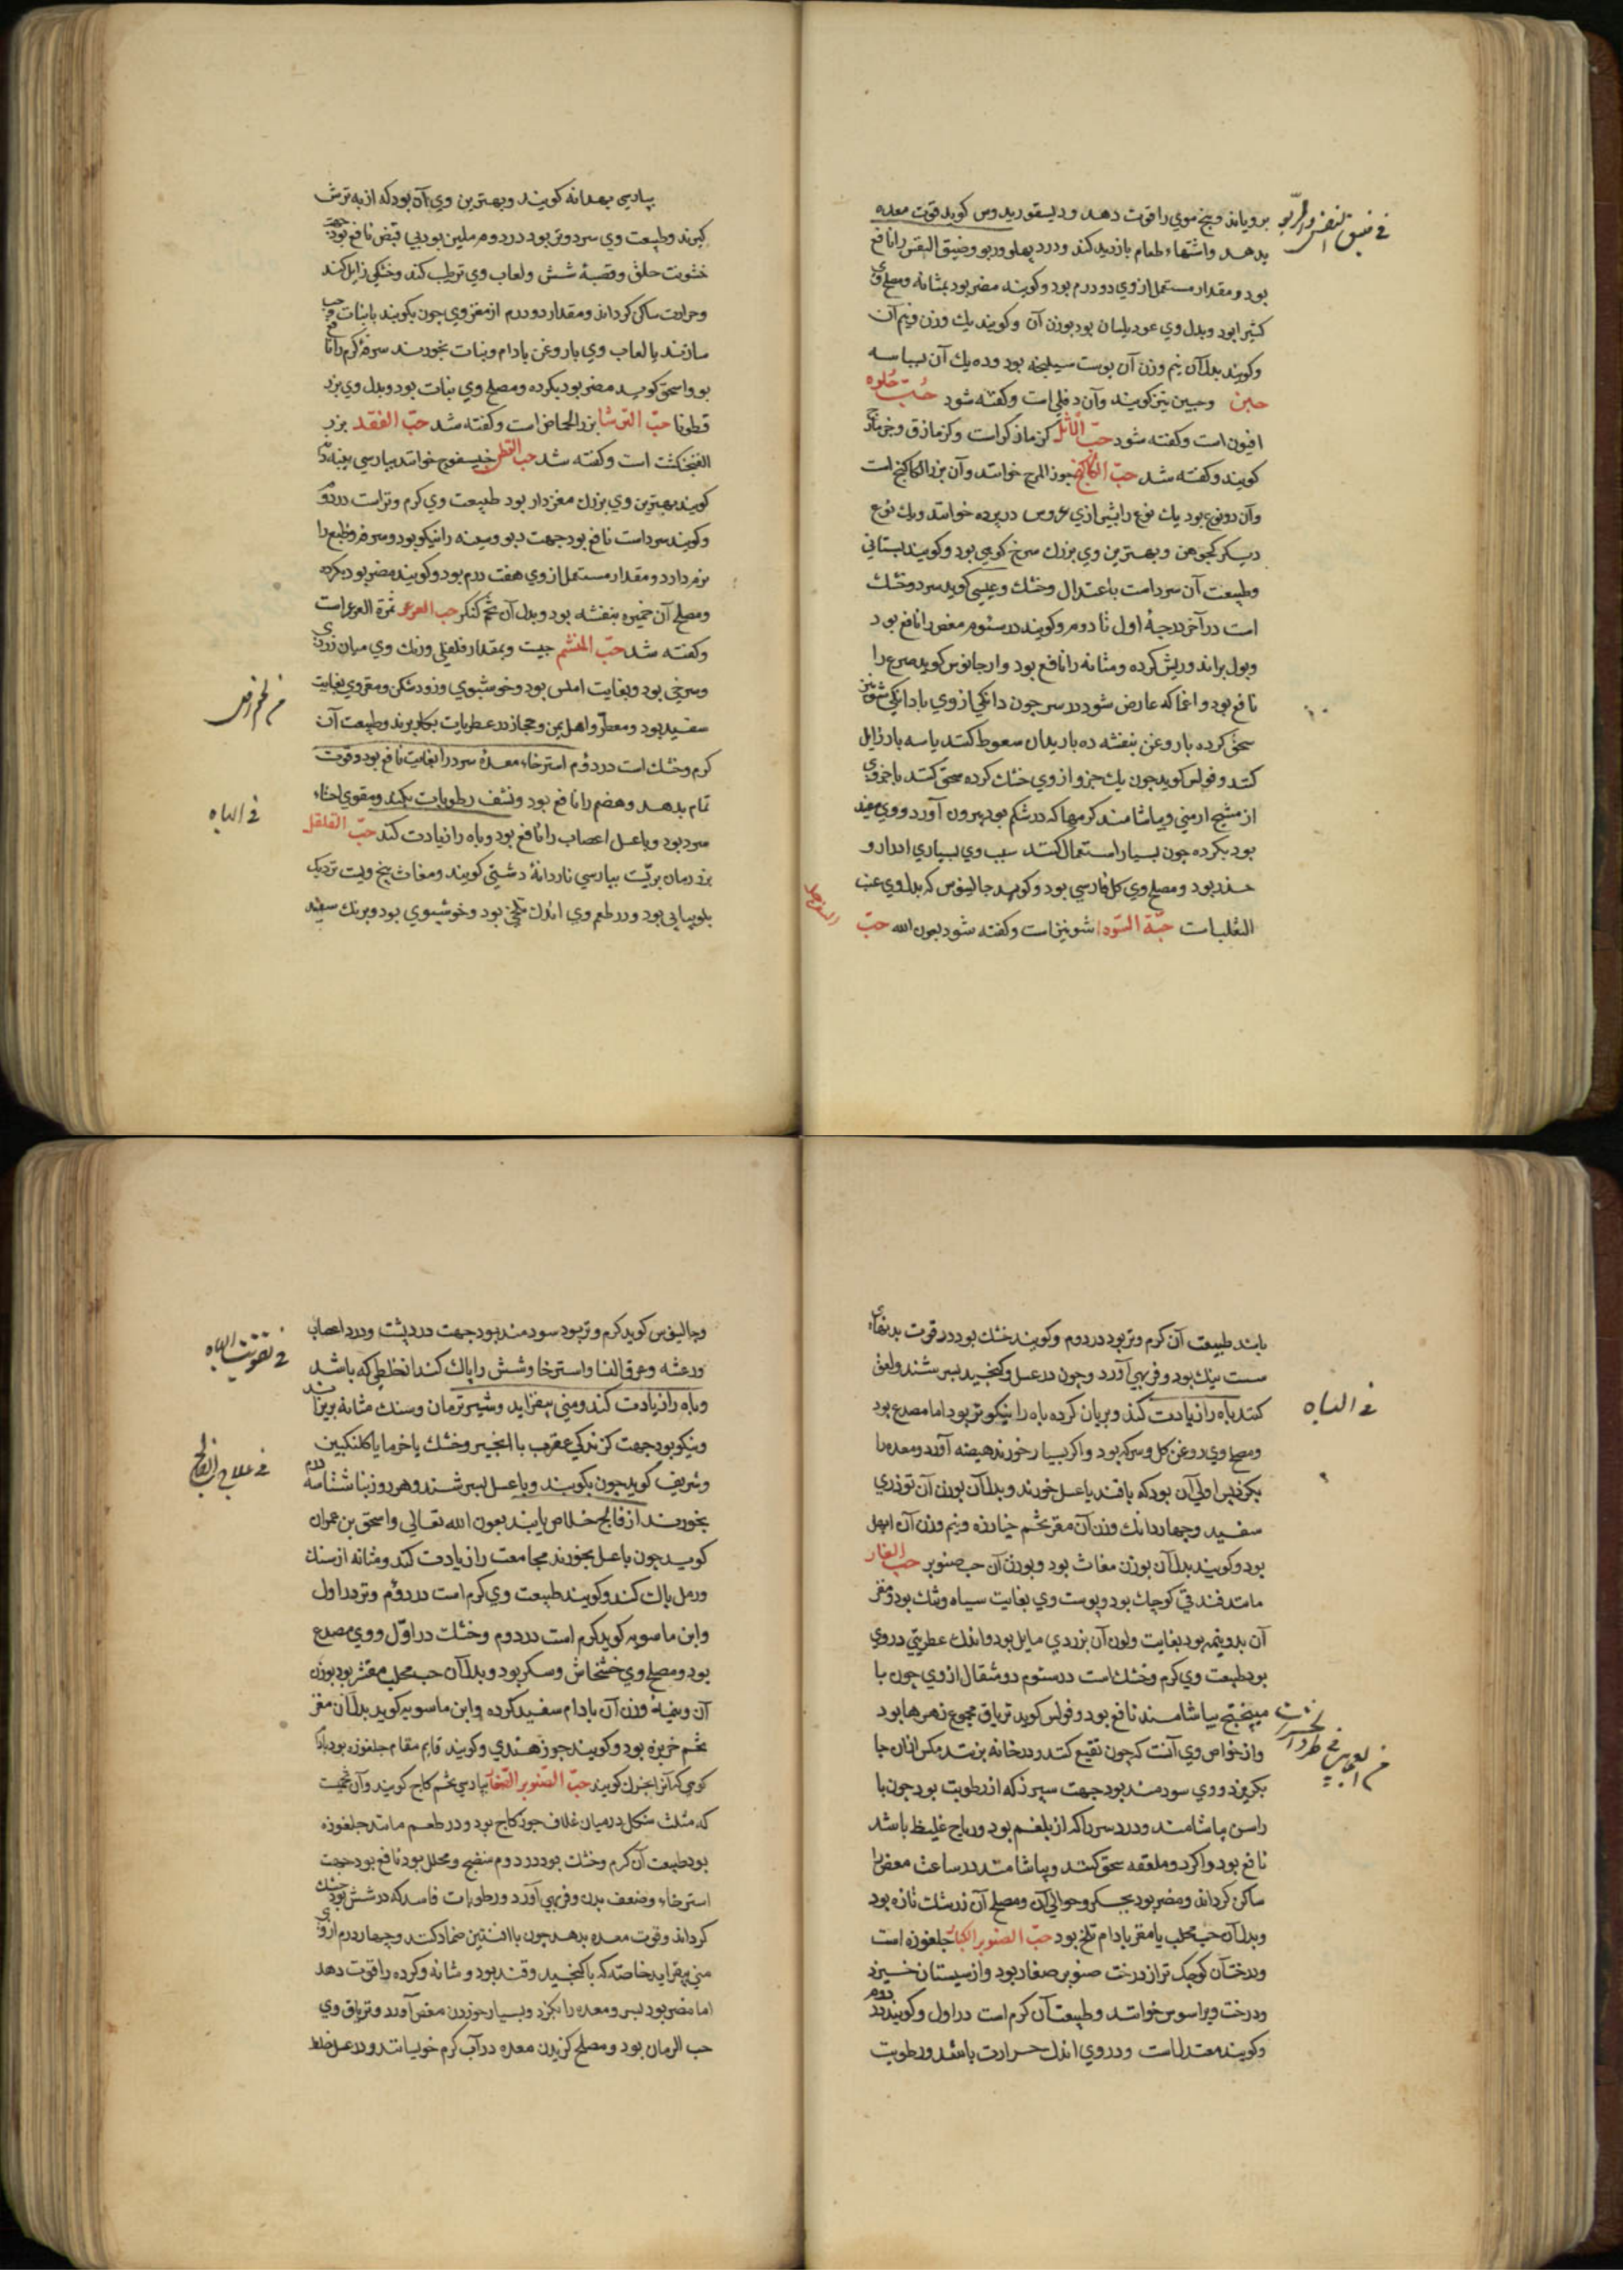 برویاند و بیخ موی را قوت دهد و دیسقوریدوس کوید قوت معده
بدهد واشتهاء طعام بازدید کند ودرد پهلو وربو وضیق النفس را نافع
بود و مقدار مستعمل از وی دو درم بود وکویند مضر بود بمثانه ومصلح وی
کثیرا بود وبدل وی عود بلسان بود بوزن آن وکویند یك وزن ونیم آن
وکویند بدل آن نیم وزن آن پوست سلیخه بود وده یك آن بسباسه
حبن وحبین نیز کویند وآن دفلی است وکفته شود حب حلوه
افیون است وکفته شود حبّ الاثل کزمازکراست وکزمازق وجزمازج
کویند وکفته شد حبّ الکاکنج جوز المرج خوانند وآن بزر الکاکنج است
وآن دو نوع بود یك نوع را بشیرازی عروس در پرده خوانند ویك نوع
دیکر کجومن وبهترین وی بزرك سرخ کوهی بود وکویند بستانی
وطبیعت آن سرد است باعتدال وخشك وعیسی کوید سرد وخشك
است در آخر درجهٔ اول تا دوم وکویند در سئوم مغص را نافع بود
وبول براند وریش کرده ومثانه را نافع بود وارجانوس کوید صرع را
نافع بود واغما که عارض شود در سر چون دانکی از وی با دانکی شونیز
سحق کرده با روغن بنفشه ده بار بدان سعوط کنند یا سه بار زایل
کند وفولس کوید چون یك جزو از وی خشك کرده سحق کنند با جزوی
از مشیح ارمنی وبیاشامند کرمها که در شکم بود بیرون آورد ووی مفید
بود بکرده چون بسیار استعمال کنند سبب وی بسیاری ادرار و
حذر بود ومصلح وی کل فارسی بود وکوید جالینوس که بدل وی عنب
الثعلب است حبّة السّودا شونیز است وکفته شود بعون الله حبّ
السفرجل
بپارسی بهدانه کویند وبهترین وی آن بود که از به ترش
کیرند وطبیعت وی سرد وتر بود در دوم ملین بود بی قبض نافع بود جهة
خشونت حلق وقصبهٔ شش ولعاب وی ترطیب کند وخشکی زایل کند
وحرارت ساکن کرداند ومقدار دو درم از مغز وی چون بکویند با نبات حب
سازند یا لعاب وی با روغن بادام ونبات بخورند سرفهٔ کرم را نافع
بود واسحق کوید مضر بود بکرده ومصلح وی نبات بود وبدل وی بزر
قطونا حبّ الترشا بزر الحماض است وکفته شد حبّ الفقد بزر
الفنجنکشت است وکفته شد حب القطن خیسفوج خوانند بپارسی پنبه دانه
کویند بهترین وی بزرك مغزدار بود طبیعت وی کرم وتراست در دوم
وکویند سرداست نافع بود جهت ربو وسینه را نیکو بود وسرفه وطبع را
نرم دارد ومقدار مستعمل از وی هفت درم بود وکویند مضر بود بکرده
ومصلح آن خمیره بنفشه بود وبدل آن تخم کنکر حب العرعر ثمرة العرعر است
وکفته شد حبّ المنشم حبیت وبمقدار فلفلی ورنك وی میان زردی
وسرخی بود وبغایت املس بود وخوشبوی وزود شکن ومغز وی بغایت
سفید بود ومعطر واهل یمن وحجاز در عطریات بکار برند وطبیعت آن
کرم وخشك است در دوم استرخاء معدهٔ سرد را بغایت نافع بود وقوت
تمام بدهد وهضم را نافع بود ونشف رطوبات بکند ومقوی احشاء
سرد بود وبا عسل اعصاب را نافع بود وباه را زیادت کند حبّ القلقل
بزر رمان بریّست بپارسی ناردانهٔ دشتی کویند ومغاث بیخ ویست نزدیك
بلوبیایی بود ودر طعم وی اندك تلخی بود وخوشبوی بود وبرنك سفید
فی ضیق النفس والربو
فی الباه
باشد طبیعت آن کرم وتر بود در دوم وکویند خشك بود در قوت بدنهای
سست نیك بود وفربهی آورد وچون در عسل وکنجید بسرشند ولعق
کنند باه را زیادت کند وبریان کرده باه را نیکوتر بود اما مصدع بود
ومصلح وی روغن کل وسرکه بود واکر بسیار خورند هیضه آورد ومعده را
بکزد پس اولی آن بود که با قند یا عسل خورند وبدل آن بوزن آن تودری
سفید وچهار دانك وزن آن مغز تخم خیارزه ونیم وزن آن ابهل
بود وکویند بدل آن بوزن مغاث بود وبوزن آن حب صنوبر حب الغار
مانند فندقی کوچك بود وپوست وی بغایت سیاه وتنك بود ومغز
آن بدو نیمه بود بغایت ولون آن بزردی مایل بود واندك عطریتی در وی
بود طبیعت وی کرم وخشك است در سئوم دو مثقال از وی چون با
میبختج بیاشامند نافع بود وفولس کوید تریاق مجموع زهرها بود
واز خواص وی آنست که چون نقیع کنند ودر خانه بزنند مکس از ان جا
بکریزد ووی سودمند بود جهت سپرز که از رطوبت بود چون با
راسن بیاشامند ودرد سر را که از بلغم بود وریاح غلیظ باشد
نافع بود واکر دو ملعقه سحق کنند وبیاشامند در ساعت مغص را
ساکن کرداند ومضر بود بجکر وحوالی آن ومصلح آن زرشك تازه بود
وبدل آن حب محلب یا مغز بادام تلخ بود حبّ الصنوبر الکبار جلغوزه است
ودرخت آن کوچك تر از درخت صنوبر صغار بود واز سیستان خیزد
ودرخت ویرا سوس خوانند وطبیعت آن کرم است در اول وکویند در دوم
وکویند معتدل است ودر وی اندك حرارت باشد ورطوبت
فی الباه
وجالینوس کوید کرم وتر بود سودمند بود جهت درد پشت ودرد اعصاب
ورعشه وعرق النسا واسترخا وشش را پاك کند از خلطی که باشد
وباه را زیادت کند ومنی بیفزاید وشیر نرمان وسنك مثانه بریزاند
ونیکو بود جهت کزندکی عقرب با انجیر وخشك یا خرما یا کلنکبین
وشریف کوید چون بکویند وبا عسل بسرشند وهر روز بناشتا سه درم
بخورند از فالج خلاص یابند بعون الله تعالی واسحق بن عمران
کوید چون با عسل بخورند مجامعت را زیادت کند ومثانه از سنك
ورمل پاك کند وکویند طبیعت وی کرم است در دوم وتر در اول
وابن ماسویه کوید کرم است در دوم وخشك در اوّل ووی مصدع
بود ومصلح وی خشخاش وسکر بود وبدل آن حب محلب مقشر بود بوزن
آن ونیمهٔ وزن آن بادام سفید کرده وابن ماسویه کوید بدل آن مغز
تخم خربزه بود وکویند جوز هندی وکویند قایم مقام جلغوزه بود بادام
کوهی که آنرا بخرك کویند حبّ الصّنوبر الصّغار بپارسی تخم کاج کویند وآن تخمیست
که مثلث شکل در میان غلاف جوز کاج بود ودر طعم مانند جلغوزه
بود طبیعت آن کرم وخشك بود در دوم منضج ومحلل بود نافع بود جهت
استرخاء وضعف بدن وفربهی آورد ورطوبات فاسد که در شش بود خشك
کرداند وقوت معده بدهد چون با افسنتین ضماد کنند وچهار درم از وی
منی بیفزاید خاصّه که با کنجید وقند بود ومثانه وکرده را قوت دهد
اما مضر بود بسر ومعده را بکزد وبسیار خوردن مغص آورد وتریاق وی
حب الرمان بود ومصلح کزیدن معده در آب کرم خویسانند ودر عسل خلط
فی تقویت الباه
فی علاج الفالج